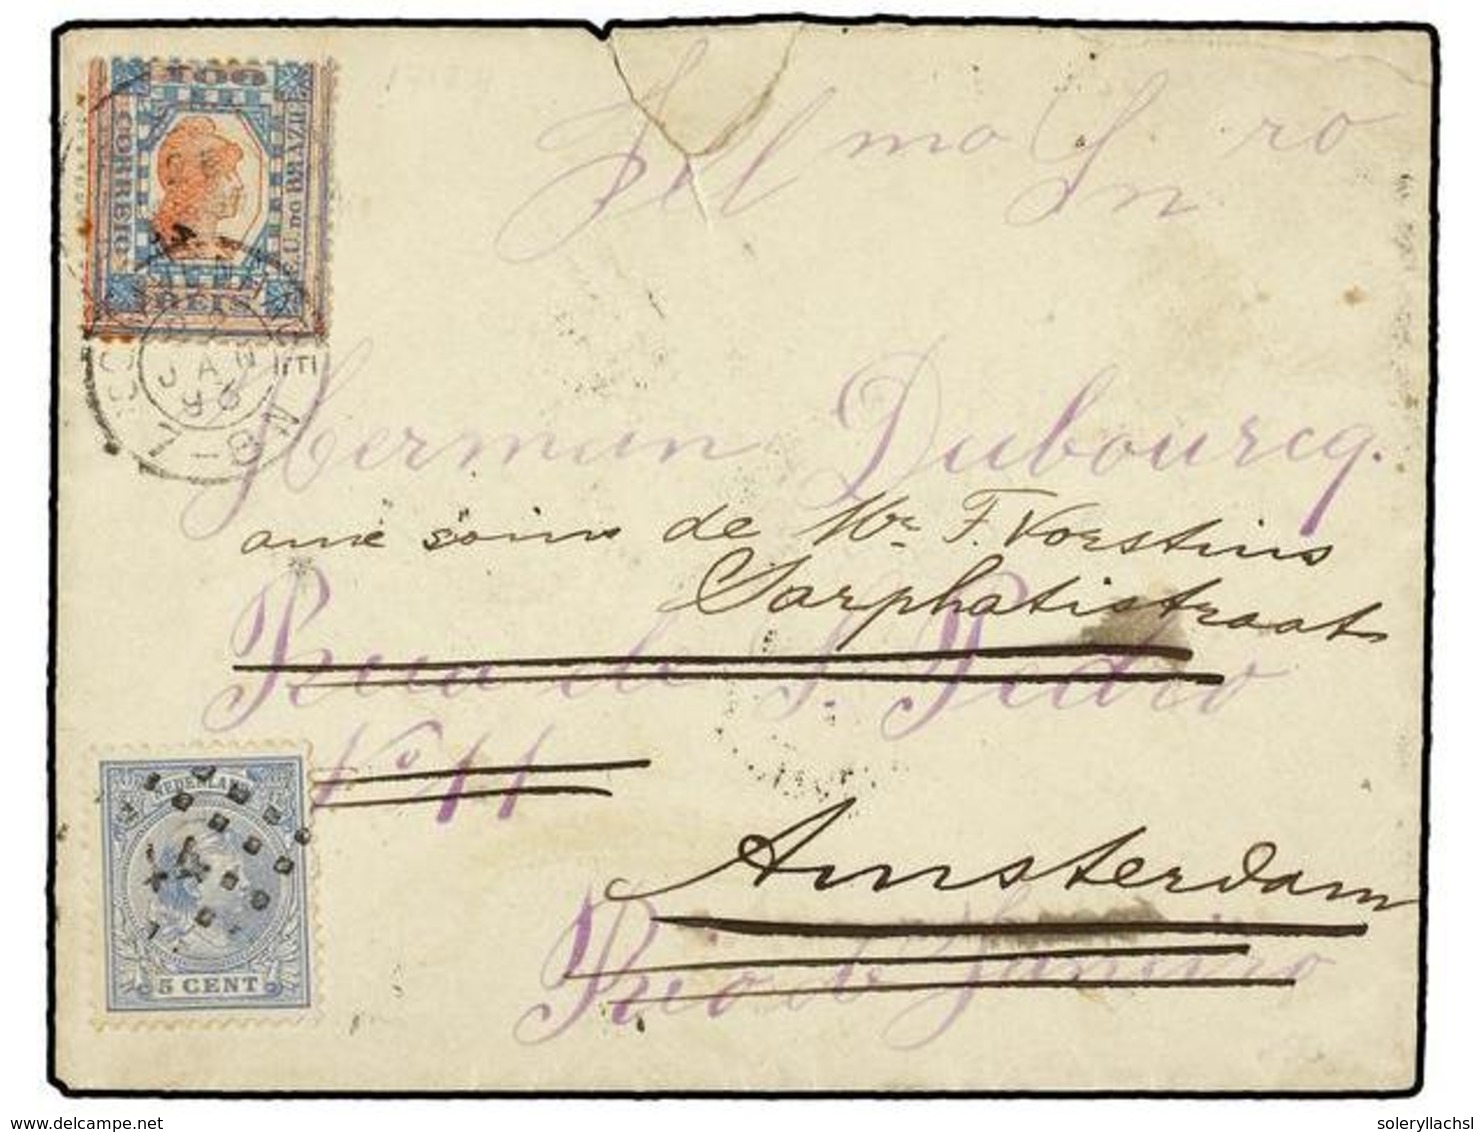 Ill mo Sn ro
100
CORREIO
E.U. DO BRAZIL
REIS
JAN
96
7
Herman Dubourcq.
aux soins de Mr F. Vorstius
Sarphatistraat
Rua de S. Pedro
No 11
NEDERLAND
5 CENT
Amsterdam
Rio de Janeiro
delcampe.net
soleryllachsl